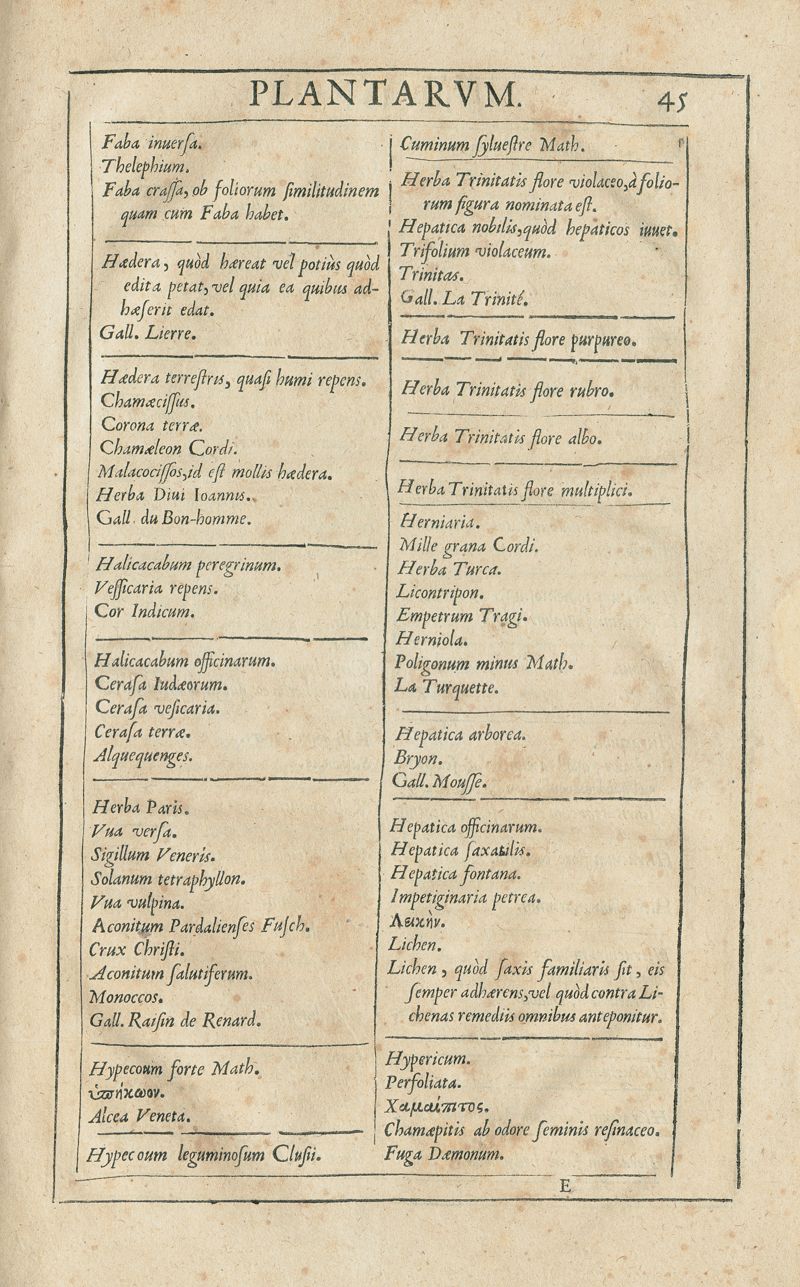 PLANTARVM. 45
Faba inuersa.
Thelephium.
Faba crassa, ob foliorum similitudinem
quam cum Faba habet.
Hædera, quòd hæreat vel potiùs quòd
edita petat, vel quia ea quibus ad-
hæserit edat.
Gall. Lierre.
Hædera terrestris, quasi humi repens.
Chamæcissus.
Corona terræ.
Chamæleon Cordi.
Malacocissos, id est mollis hædera.
Herba Diui Ioannis.
Gall. du Bon-homme.
Halicacabum peregrinum.
Vessicaria repens.
Cor Indicum.
Halicacabum officinarum.
Cerasa Iudæorum.
Cerasa vesicaria.
Cerasa terræ.
Alquequenges.
Herba Paris.
Vua versa.
Sigillum Veneris.
Solanum tetraphyllon.
Vua vulpina.
Aconitum Pardalienses Fusch.
Crux Christi.
Aconitum salutiferum.
Monoccos.
Gall. Raisin de Renard.
Hypecoum forte Math.
ὑπήκωον.
Alcea Veneta.
Hypecoum leguminosum Clusii.
Cuminum syluestre Math.
Herba Trinitatis flore violaceo, à folio-
rum figura nominata est.
Hepatica nobilis, quòd hepaticos iuuet.
Trifolium violaceum.
Trinitas.
Gall. La Trinité.
Herba Trinitatis flore purpureo.
Herba Trinitatis flore rubro.
Herba Trinitatis flore albo.
Herba Trinitatis flore multiplici.
Herniaria.
Mille grana Cordi.
Herba Turca.
Licontripon.
Empetrum Tragi.
Herniola.
Poligonum minus Math.
La Turquette.
Hepatica arborea.
Bryon.
Gall. Mousse.
Hepatica officinarum.
Hepatica saxatilis.
Hepatica fontana.
Impetiginaria petrea.
Λεικὴν.
Lichen.
Lichen, quòd saxis familiaris sit, eis
semper adhærens, vel quòd contra Li-
chenas remediis omnibus anteponitur.
Hypericum.
Perfoliata.
Χαμαίπιτος.
Chamæpitis ab odore seminis resinaceo.
Fuga Dæmonum.
E